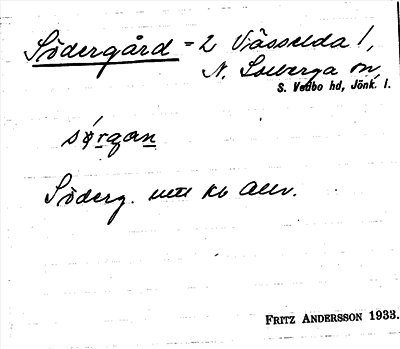 Södergård = 2 Vässelda 1,
N. Solberga sn,
S. Vedbo hd, Jönk. l.
sørgan
Söderg. utt kb allm.
FRITZ ANDERSSON 1933.